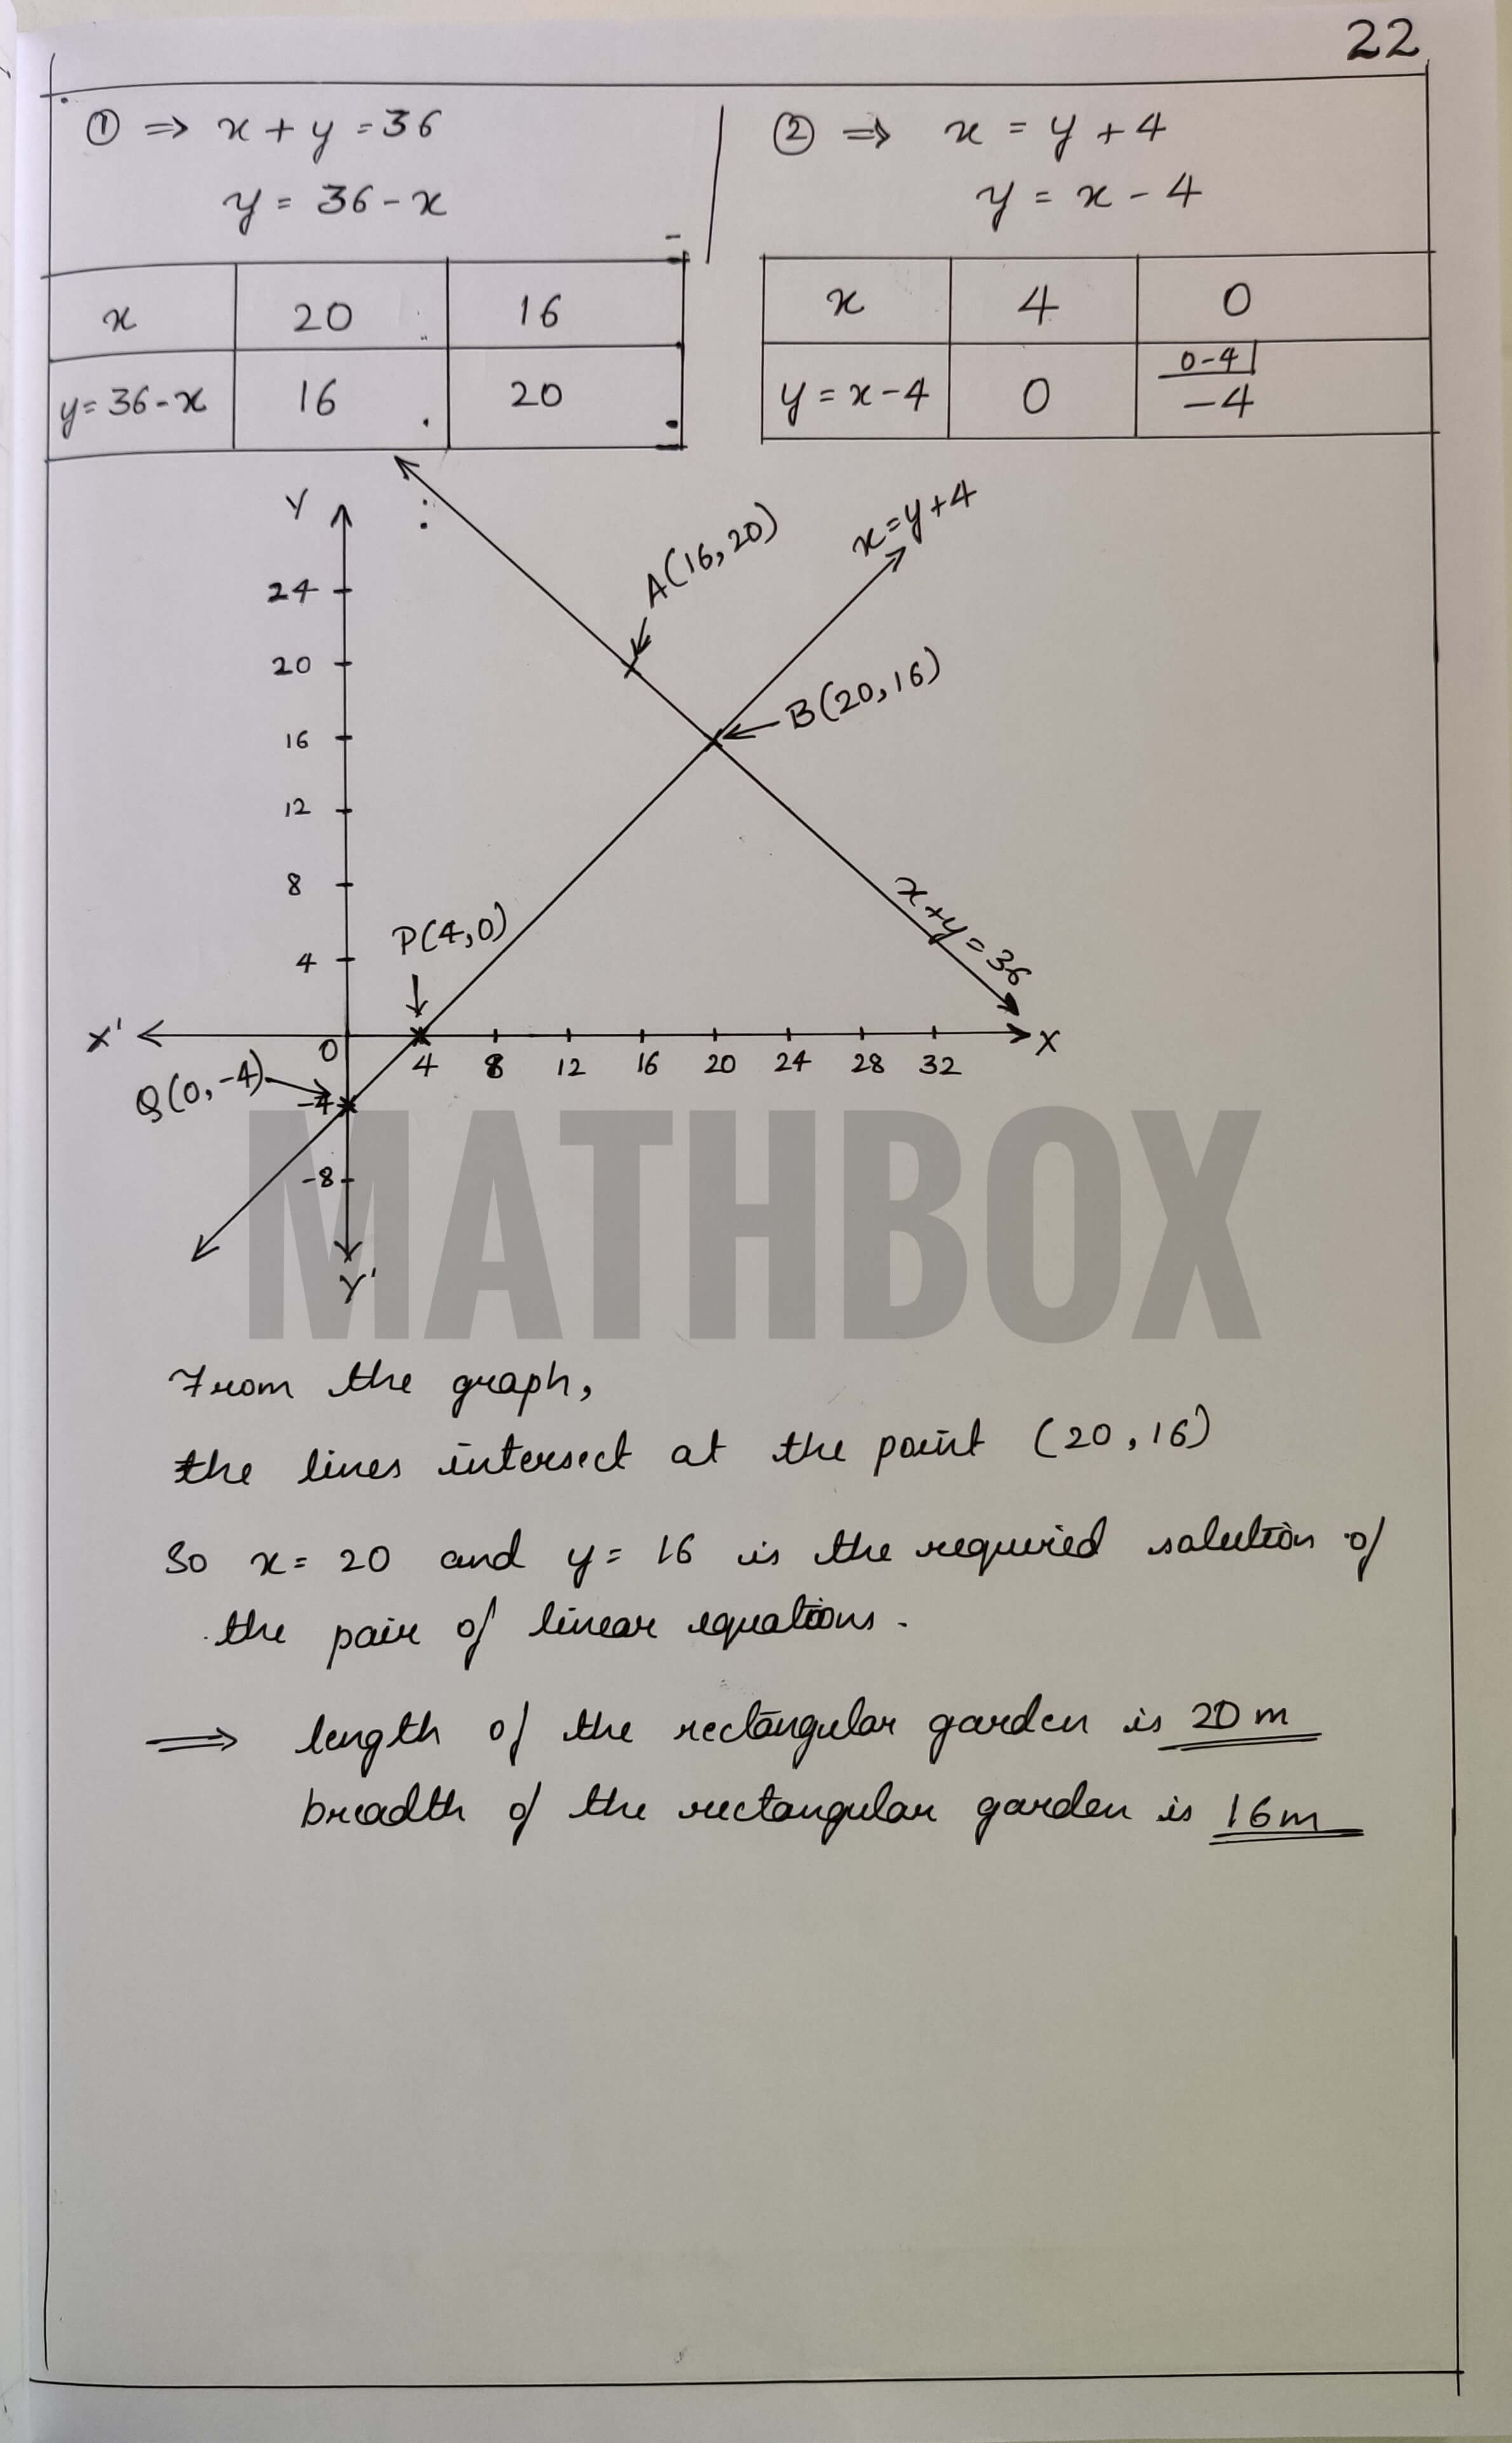 22
① ⇒ x + y = 36
y = 36 - x
② ⇒ x = y + 4
y = x - 4
x 20 16
y = 36 - x 16 20
x 4 0
y = x - 4 0 0-4 -4
Y
24
20
16
12
8
4
A(16, 20)
x = y + 4
B(20, 16)
P(4, 0)
x + y = 36
X' 0 4 8 12 16 20 24 28 32 X
Q(0, -4)
-4
-8
Y'
MATHBOX
From the graph,
the lines intersect at the point (20, 16)
So x = 20 and y = 16 is the required solution of
the pair of linear equations.
⇒ length of the rectangular garden is 20 m
breadth of the rectangular garden is 16m